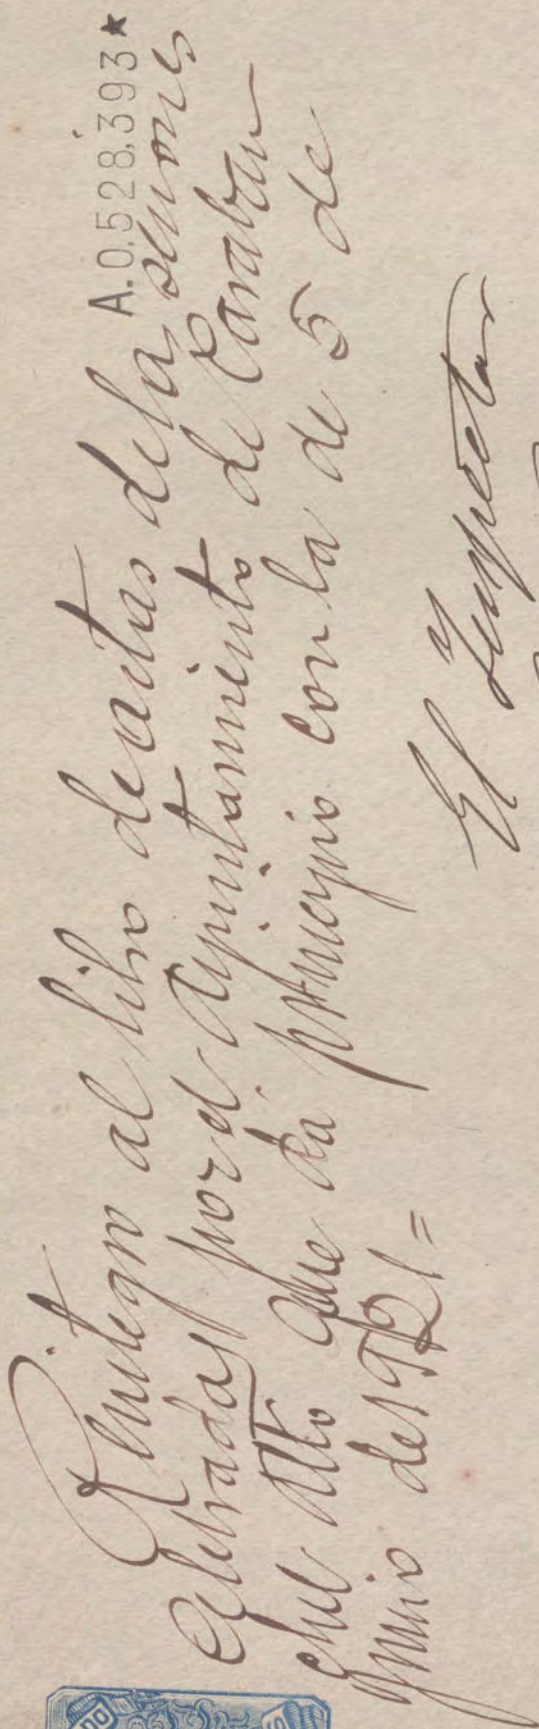 A.0.528.393★
Reintegro al libro de actas de la sesiones
celebradas por el Ayuntamiento de Caraban
chel Alto que da principio con la de 5 de
Junio de 1921=
El Inspector